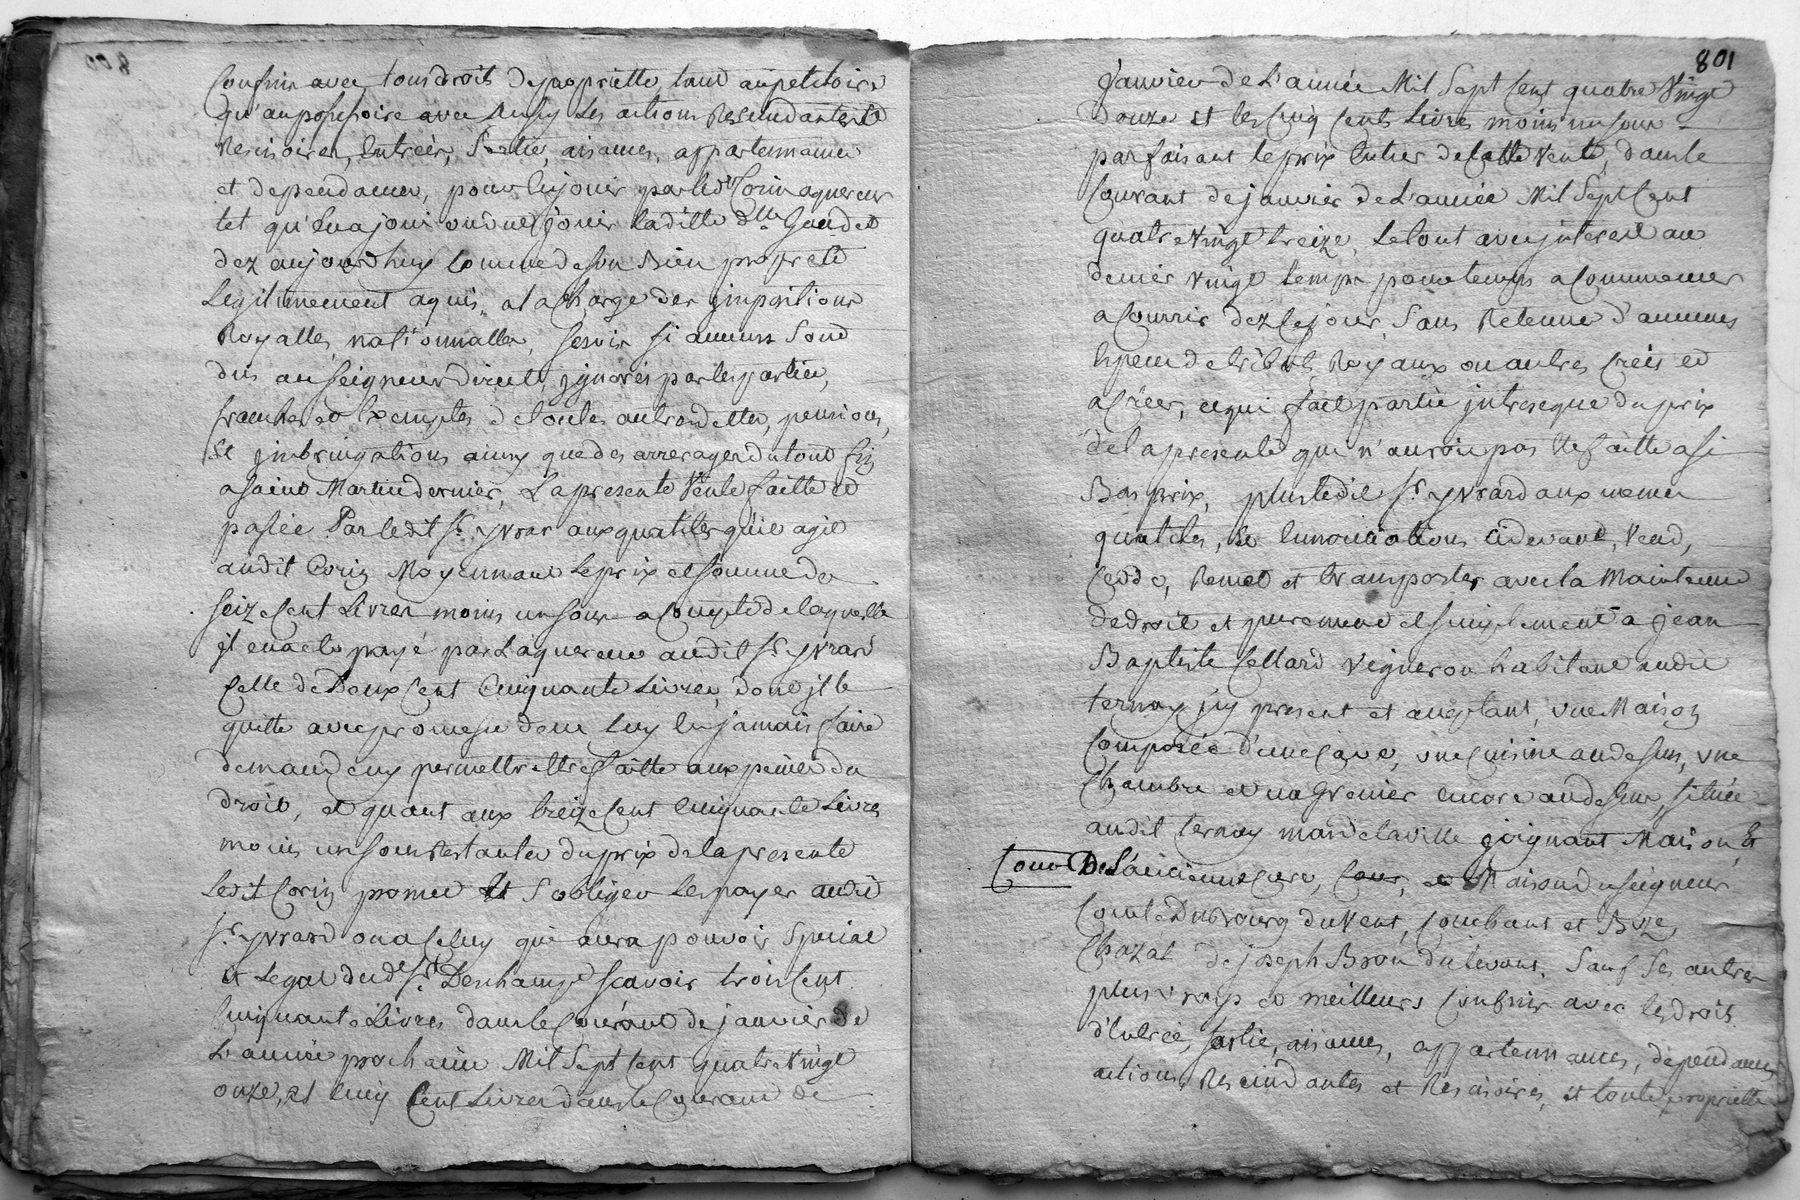 Confins avec tous droits de propriette tant au petitoire
qu'au possessoire avec ausy les actions Rescindantes et
Rescisoires, Entrées, Sorties, aisances, appartenances
et dependances, pour En jouir par led. Corin aquereur
tel qu'En a joui ou dut jouir laditte dlle. Gaudet
dez aujourdhuy Comme de son Bien propre et
Legitimement aquis, a la Charge des jmpositions
Royalles, nationnalles, servis si aucuns Sont
dus au seigneur direct, jgnorés par les parties,
franches et Exemptes de toutes autres dettes, pensions,
et jmbringations ainsy que des arrerages du tout
a saint Martin dernier, La presente Vente faitte et
passée Par ledit Sr. yvrard aux qualités qu'il agit
audit Corin Moyennant le prix et somme de
seize Cent Livres moins un sou a compte de laquelle
jl en a eté payé par L'aquereur audit Sr. yvrard
Celle de Deux Cent Cinquante Livres, dont jl le
quitte avec promesse de ne luy En jamais faire
demande ny permettre Etre faitte aux peines du
droit, et quant aux treize Cent Cinquante Livres
moins un sou Restantes du prix de la presente
Ledit Corin promet Et S'obliger Les payer audit
Sr. yvrard ou a Celuy qui aura pouvoir Special
et Legal dud. Sr. Deschamps scavoir trois Cent
Cinquante Livres dans le Courant de janvier de
L'année prochaine Mil Sept Cent quatre Vingt
onze, et Cinq Cent Livres dans le Courant de
801
Janvier de L'année Mil Sept Cent quatre Vingt
Douze et les Cinq Cents Livres moins un sou
parfaisant le prix Entier de laditte Vente, dans le
Courant de janvier de L'année Mil Sept Cent
quatre Vingt treize, Le tout avec jnterest au
denier Vingt temps pour temps a Commencer
a Courrir dez Ce jour Sans Retenue d'aucunes
Especes de tributs Royaux ou autres Créés et
a Créer, ce qui fait partie jntreseque du prix
de la presente qui n'auroit pas Eté faitte a si
Bas prix, plus ledit Sr. yvrard aux memes
qualités, et Enonciations Cidevant, Vend,
Cedde, Remet et transporte avec la Maintenue
de droit et purement et simplement a jean
Baptiste Cellard Vigneron habitant audit
ternay jcy present et aceptant, une Maison
Composée d'une Cave, une Cuisine au dessus, une
Chambre et un Grenier encore au dessus, située
audit ternay mas de la ville joignant Maison, Et
Cour De L'ancienne Cure, Cour, et Maison du seigneur
Comte Dubourg du Vent, Couchant et Bize,
Chazal de joseph Bron du levant, Sauf Ses autres
plus vrays et meilleurs Confins avec les droits
d'Entrée, sortie, aisances, appartennances, dépendances
actions Rescindantes et Rescisoires, et toute propriette